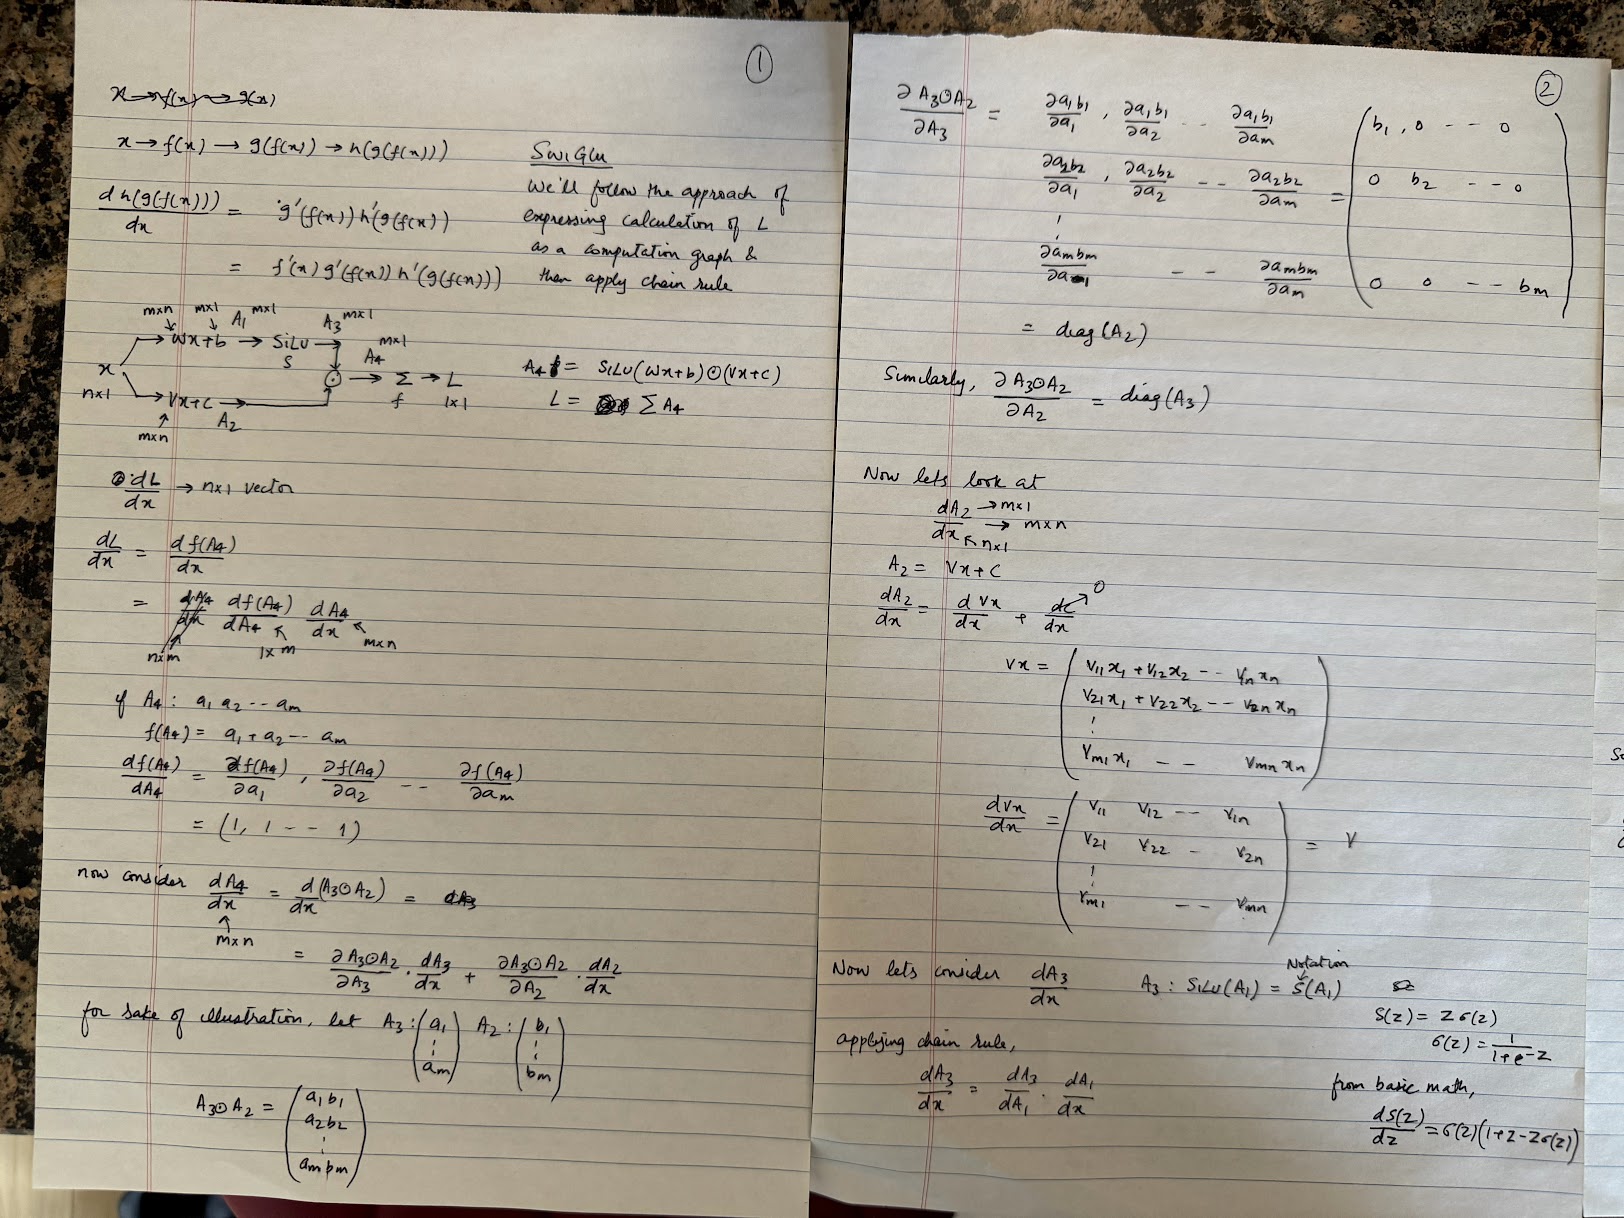 ①
x → f(x) → g(x)
x → f(x) → g(f(x)) → h(g(f(x)))
d h(g(f(x))) / dx = g'(f(x)) h'(g(f(x))
= f'(x) g'(f(x)) h'(g(f(x)))
SwiGlu
We'll follow the approach of
expressing calculation of L
as a computation graph &
then apply chain rule
m×n m×1 A₁ m×1 A₃ m×1
Wx+b → SiLU → m×1
S A₄
x ⊙ → Σ → L
n×1 f 1×1
Vx+C →
m×n A₂
A₄ = SiLU(Wx+b)⊙(Vx+c)
L = Σ A₄
dL/dx → n×1 vector
dL/dx = d f(A₄)/dx
= dA₄/dx df(A₄)/dA₄ dA₄/dx
n×m 1×m m×n
if A₄ : a₁ a₂ -- aₘ
f(A₄) = a₁ + a₂ -- aₘ
df(A₄)/dA₄ = ∂f(A₄)/∂a₁ , ∂f(A₄)/∂a₂ -- ∂f(A₄)/∂aₘ
= (1, 1 -- 1)
now consider dA₄/dx = d/dx (A₃⊙A₂) = dA₃
m×n
= ∂A₃⊙A₂/∂A₃ · dA₃/dx + ∂A₃⊙A₂/∂A₂ · dA₂/dx
for sake of illustration, let A₃ : (a₁ ⋮ aₘ) A₂ : (b₁ ⋮ bₘ)
A₃⊙A₂ = (a₁b₁
a₂b₂
⋮
aₘbₘ)
②
∂A₃⊙A₂/∂A₃ = ∂a₁b₁/∂a₁ , ∂a₁b₁/∂a₂ -- ∂a₁b₁/∂aₘ (b₁, 0 --- 0
∂a₂b₂/∂a₁ , ∂a₂b₂/∂a₂ -- ∂a₂b₂/∂aₘ = 0 b₂ --- 0
⋮
∂aₘbₘ/∂a₁ -- ∂aₘbₘ/∂aₘ 0 0 -- bₘ)
= diag(A₂)
Similarly, ∂A₃⊙A₂/∂A₂ = diag(A₃)
Now lets look at
dA₂/dx → m×1 → m×n
n×1
A₂ = Vx+C
dA₂/dx = d Vx/dx + dc/dx 0
Vx = (v₁₁x₁ + v₁₂x₂ -- v₁ₙxₙ
v₂₁x₁ + v₂₂x₂ -- v₂ₙxₙ
⋮
vₘ₁x₁ -- vₘₙxₙ)
dVx/dx = (v₁₁ v₁₂ -- v₁ₙ
v₂₁ v₂₂ - v₂ₙ = V
⋮
vₘ₁ -- vₘₙ)
Now lets consider dA₃/dx
Notation
A₃ : SiLU(A₁) = S(A₁)
S(z) = zσ(z)
σ(z) = 1/(1+e^-z)
applying chain rule,
dA₃/dx = dA₃/dA₁ · dA₁/dx
from basic math,
dS(z)/dz = σ(z)(1+z-zσ(z))